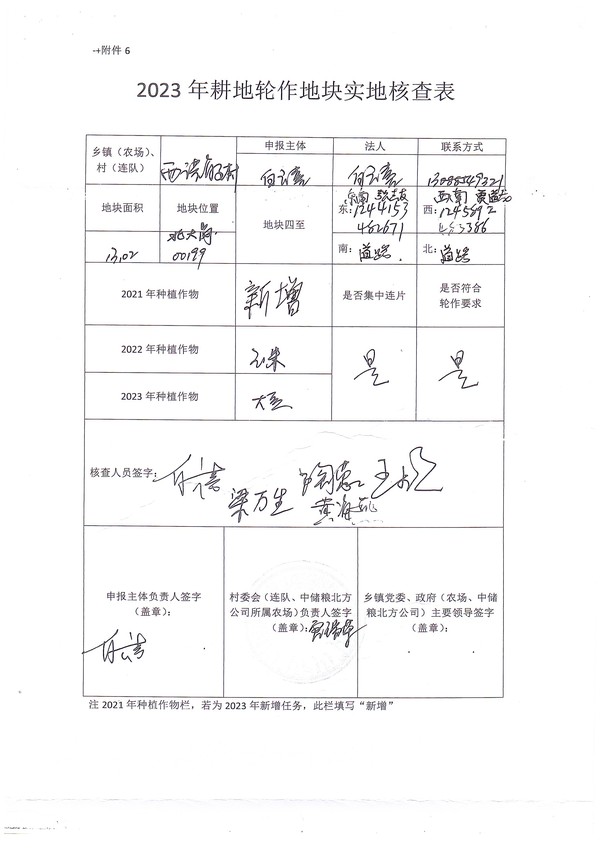 附件 6
2023 年耕地轮作地块实地核查表
乡镇（农场）、
村（连队）
申报主体
法人
联系方式
13088549321
地块面积
地块位置
地块四至
东：1244153
482671
西：124
386
13.02
北大岗
00199
南：道路
北：道路
2021 年种植作物
新增
是否集中连片
是否符合
轮作要求
2022 年种植作物
玉米
是
是
2023 年种植作物
大豆
核查人员签字：
梁万生
申报主体负责人签字
（盖章）：
村委会（连队、中储粮北方
公司所属农场）负责人签字
（盖章）：
乡镇党委、政府（农场、中储
粮北方公司）主要领导签字
（盖章）：
注 2021 年种植作物栏，若为 2023 年新增任务，此栏填写“新增”